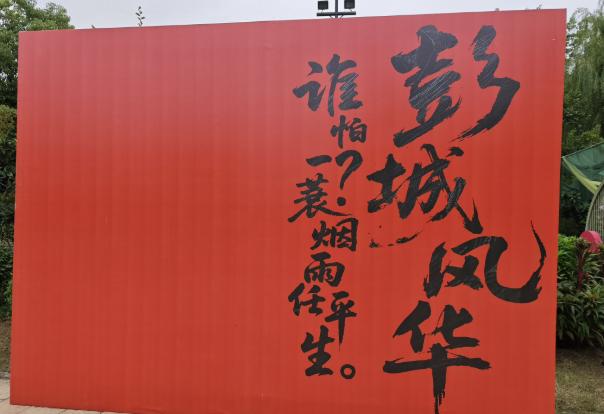 彭城风华
谁怕？一蓑烟雨任平生。